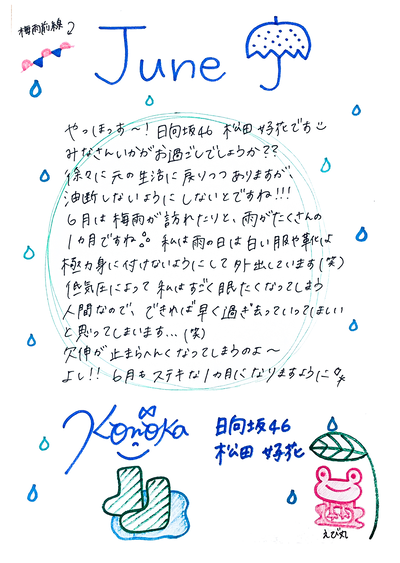 梅雨前線
June
やっほっす〜！日向坂46 松田好花です
みなさんいかがお過ごしでしょうか??
徐々に元の生活に戻りつつありますが、
油断しないようにしないとですね!!!
6月は梅雨が訪れたりと、雨がたくさんの
1か月ですね。私は雨の日は白い服や革化は
極力身に付けないようにして外出しています(笑)
低気圧によって私はすごく眠たくなってしまう
人間なので、できれば早く過ぎ去っていってほしい
と思ってしまいます…(笑)
欠伸が止まらへんくなってしまうのよ〜
よし!! 6月もステキな1か月になりますように
Konoka
日向坂46
松田好花
えび丸